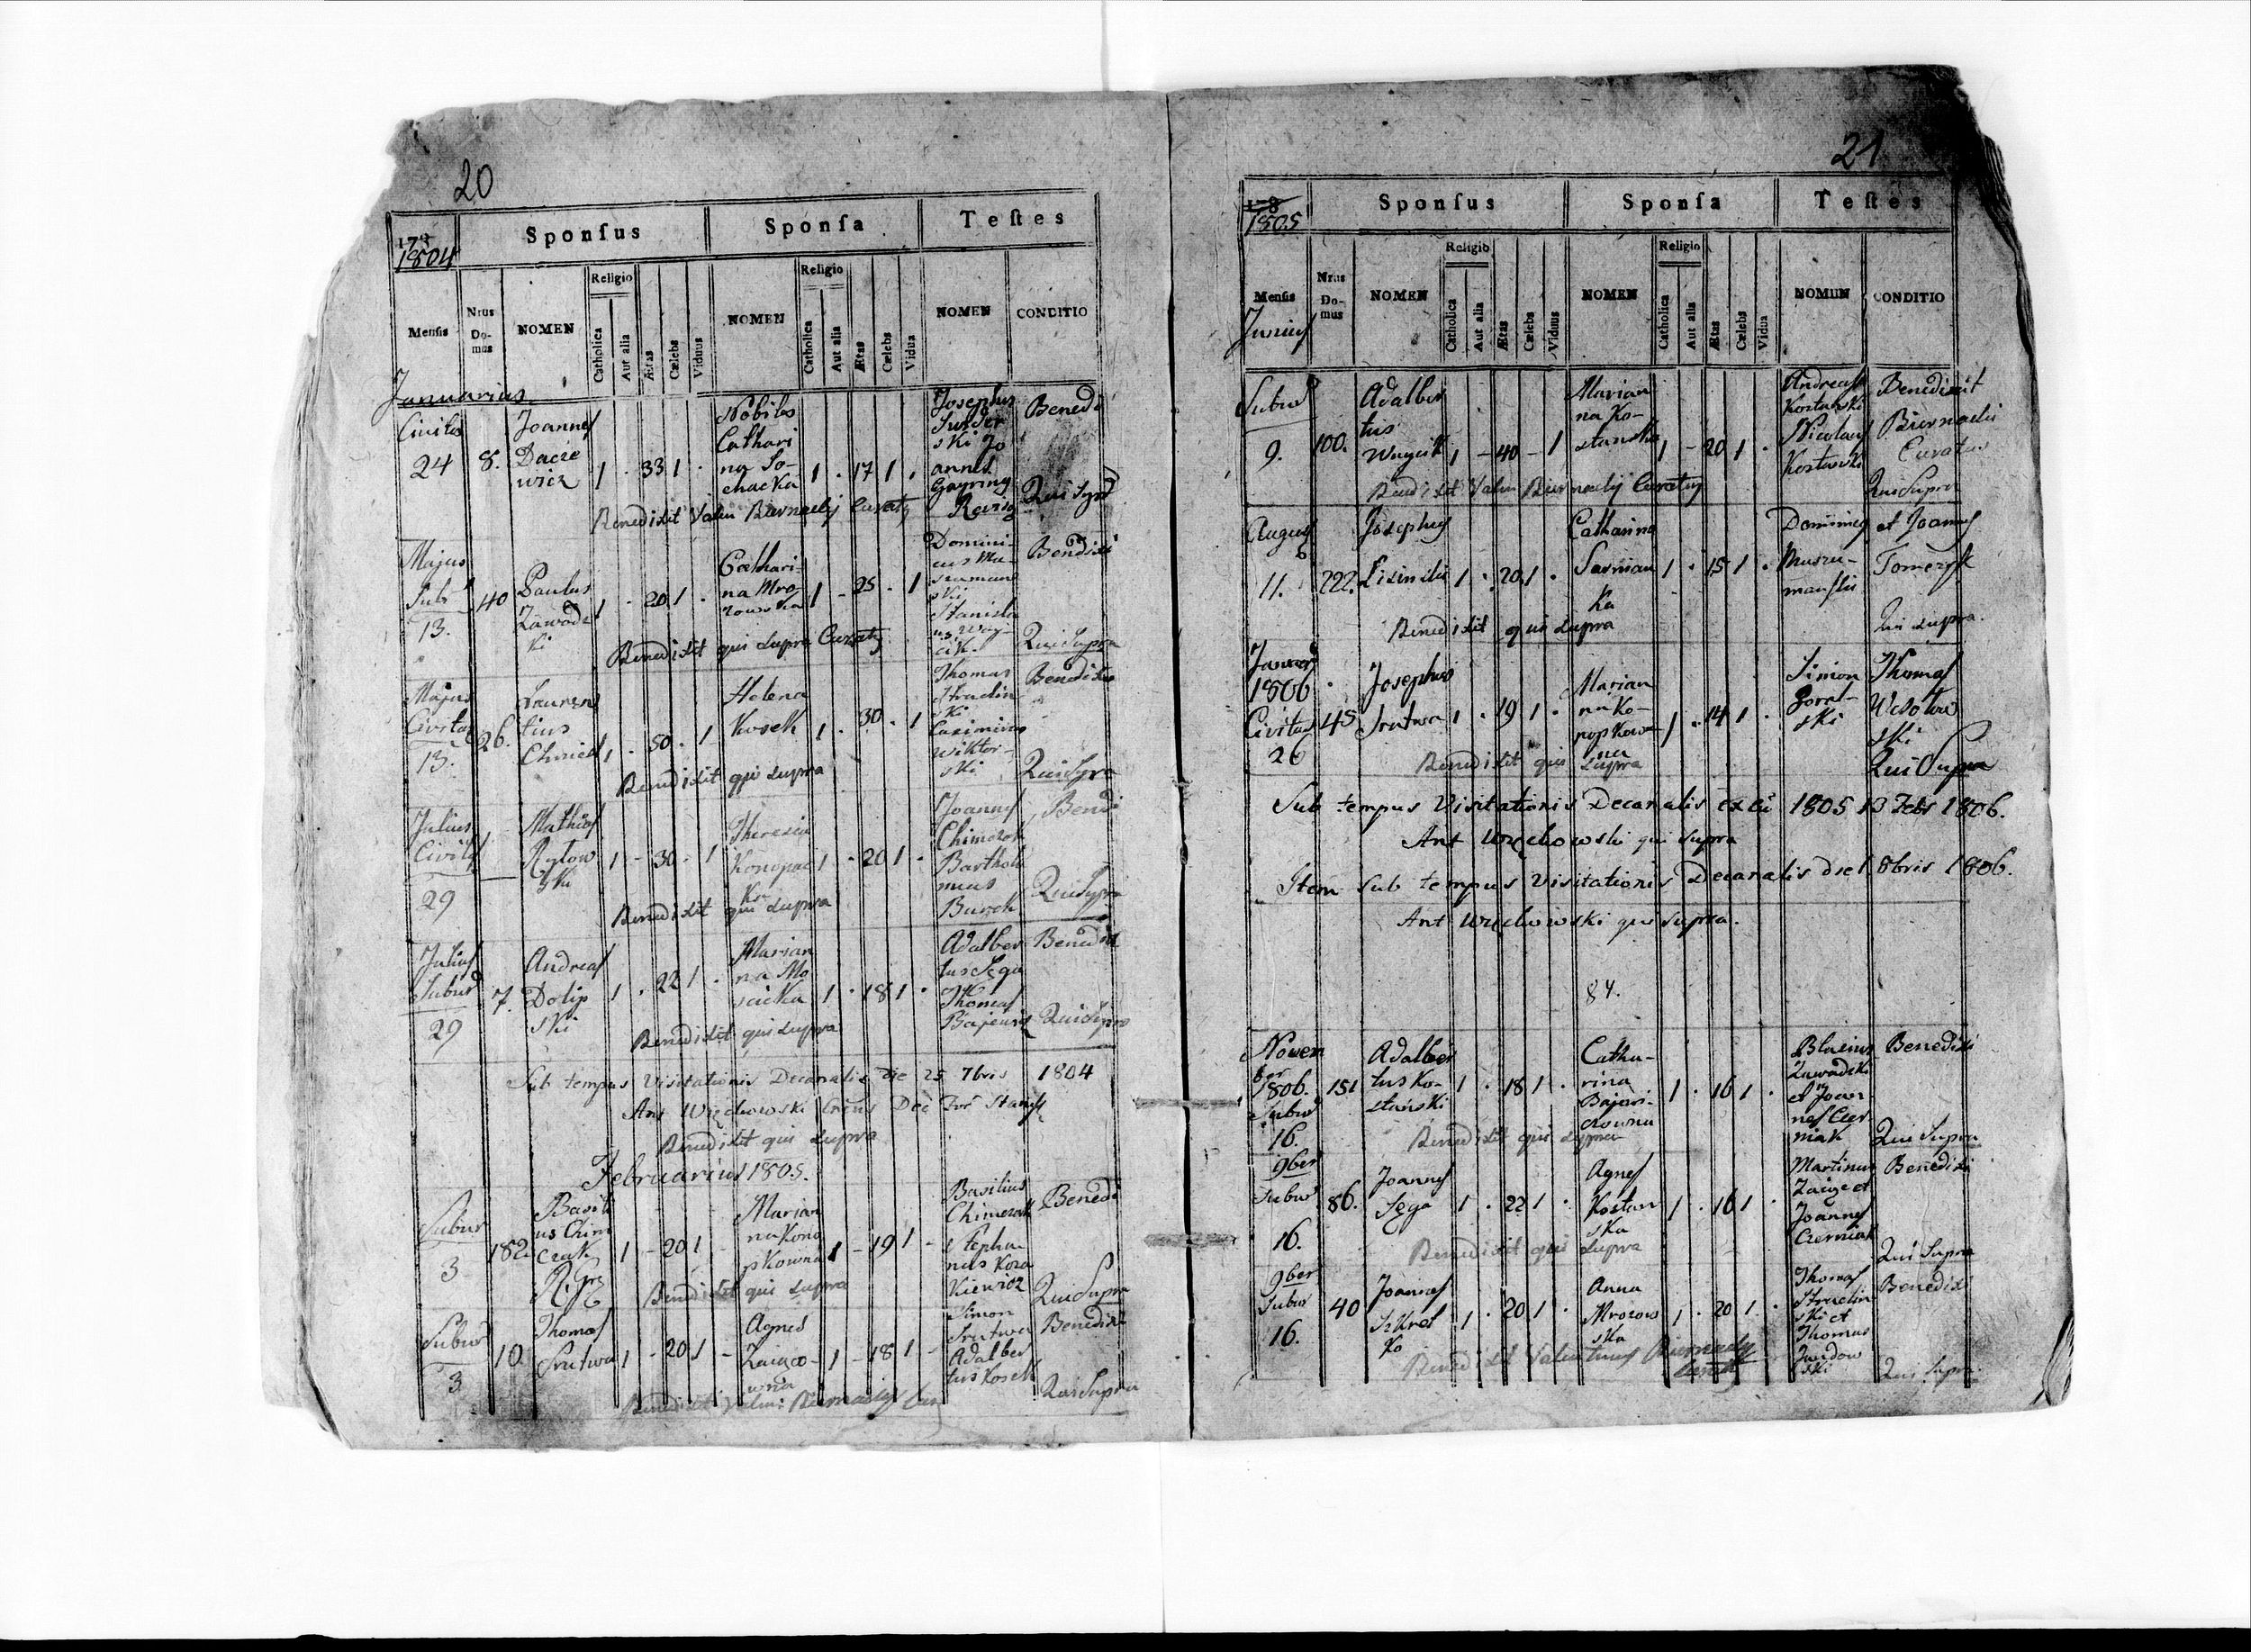 20
173
1804
Sponſus
Sponſa
Teſtes
Menſis
Nrus Do-mus
NOMEN
Religio
Catholica
Aut alia
Ætas
Cælebs
Viduus
NOMEN
Religio
Catholica
Aut alia
Ætas
Cælebs
Vidua
NOMEN
CONDITIO
Januarius
Civitas
24
8.
Joannes
Dacie
wicz
1 . 33 1 .
Nobiles
Cathari
na So-
chacka
1 . 17 1 .
Josephus
ski Jo
annes
Benedi
Benedixit Valen Biernacky Curatus
Majus
Sub
13.
40
Paulus
Zawadz
ki
1 . 20 1 .
Cathari-
na Mro
zowska
1 - 25 . 1
Domini-
cus Mu-
szuman
ski
Stanisla
us Way-
cik
Benedixi
Qui Supra
Benedixit qui supra Curatus
Majus
Civitas
13.
26.
Lauren
tius
Chmiel
1 . 50 . 1
Helena
Kosek
1 . 30 . 1
Thomas
Struclin
ski
Casimirus
Wiktor-
ski
Benedixi
Qui Supra
Benedixit qui supra
Julius
Civitas
29
Mathias
Rytow
ski
1 - 30 . 1
Theresia
Konopac
ka
1 . 20 1 .
Joannes
Chimczak
Bartholo
meus
Burek
Benedi
Qui Supra
Benedixit qui supra
Julius
Subur
29
7.
Andreas
Dolip
ski
1 . 22 1 .
Marian
na Mo
scicka
1 . 18 1 .
Adalber
tus Sęga
Thomas
Benedix
Qui Supra
Benedixit qui supra
Sub tempus Visitationis Decanalis die 25 7bris 1804
Ant Więckowski
Benedixit qui supra
Februarius 1805.
Subur
3
182
Basili
us Chim
czak
1 - 20 1 .
Marian
na Kono
pkowna
1 - 19 1 -
Basilius
Chimczak
Stepha-
nus Koza
kiewicz
Benedi
Qui Supra
Benedixit qui supra
Subur
3
10.
Thomas
Srutwa
1 - 20 1 -
Agnes
Zaigo-
wna
1 - 18 1 -
Simon
Srutwa
Adalber
tus Kosek
Benedixi
Qui Supra
Benedixit Valen: Biernacky Cur
21
178
1805
Sponſus
Sponſa
Teſtes
Menſis
Nrus Do-mus
NOMEN
Religio
Catholica
Aut alia
Ætas
Cælebs
Viduus
NOMEN
Religio
Catholica
Aut alia
Ætas
Cælebs
Vidua
NOMEN
CONDITIO
Junius
Subur
9.
100.
Adalber
tus
Waycik
1 - 40 - 1
Marian
na Ko-
stanska
1 - 20 1 .
Andreas
Kostanski
Nicolaus
Kostanski
Benedixit
Biernacki
Curatus
Qui Supra
Benedixit Valen Biernacky Curatus
August
11.
222.
Josephus
Lisinski
1 . 20 1 .
Catharina
Sarnian
ka
1 . 15 1 .
Dominicus et Joannes
Muszu-
manski
Tomczyk
Qui supra.
Benedixit qui supra
Januar
1806
Civitas
26
45
Josephus
Srutwa
1 . 19 1 .
Marian
na Ko-
nopkow
na
1 . 14 1 .
Simon
Goral-
ski
Thomas
Wesołow
ski
Qui Supra
Benedixit qui supra
Sub tempus Visitationis Decanalis 1805 13 Febr 1806.
Ant Więckowski qui supra
Item sub tempus Visitationis Decanalis die 1 8bris 1806.
Ant Więckowski qui supra.
84.
Novem
ber
1806.
Subur
16.
151
Adalber
tus Ko-
stanski
1 . 18 1 .
Catha-
rina
Bajor-
czowna
1 . 16 1 .
Blasius
Zawadzki
et Joan
nes Czer
niak
Benedixi
Qui Supra
Benedixit qui supra
9ber
Subur
16.
86.
Joannes
Sęga
1 . 22 1 .
Agnes
Kostan
ska
1 . 16 1 .
Martinus
Zaige et
Joannes
Czerniak
Benedixi
Qui Supra
Benedixit qui supra
9ber
Subur
16.
40
Joannes
Szkrot
ko
1 . 20 1 .
Anna
Mrozow
ska
1 . 20 1 .
Thomas
Struclin
ski et
Thomas
Jandow
ski
Benedixi
Qui Supra.
Benedixit Valentinus Biernacky
Curatus